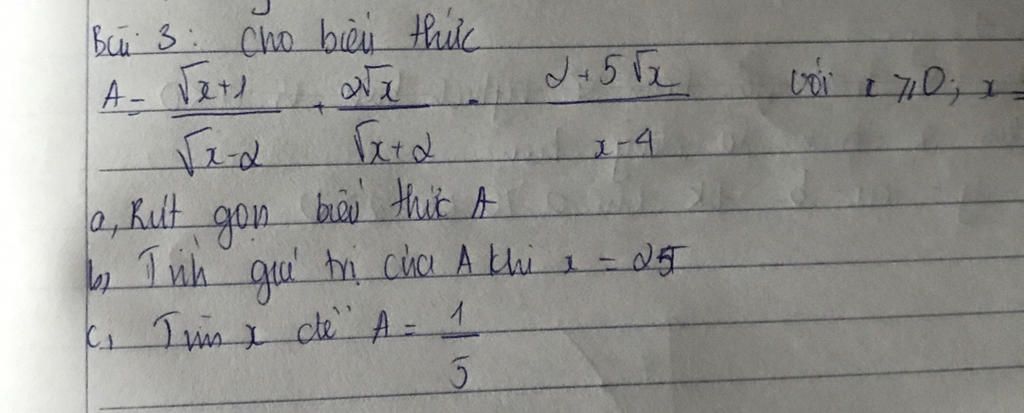 Bài 3: Cho biểu thức
A = \frac{\sqrt{x}+1}{\sqrt{x}-2} + \frac{2\sqrt{x}}{\sqrt{x}+2} - \frac{2+5\sqrt{x}}{x-4} với x ⩾ 0; x
a, Rút gọn biểu thức A
b, Tính giá trị của A khi x = 25
c, Tìm x để A = \frac{1}{5}